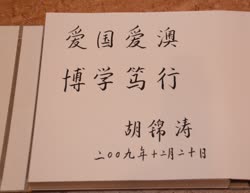 爱国爱澳
博学笃行
胡锦涛
二〇〇九年十二月二十日